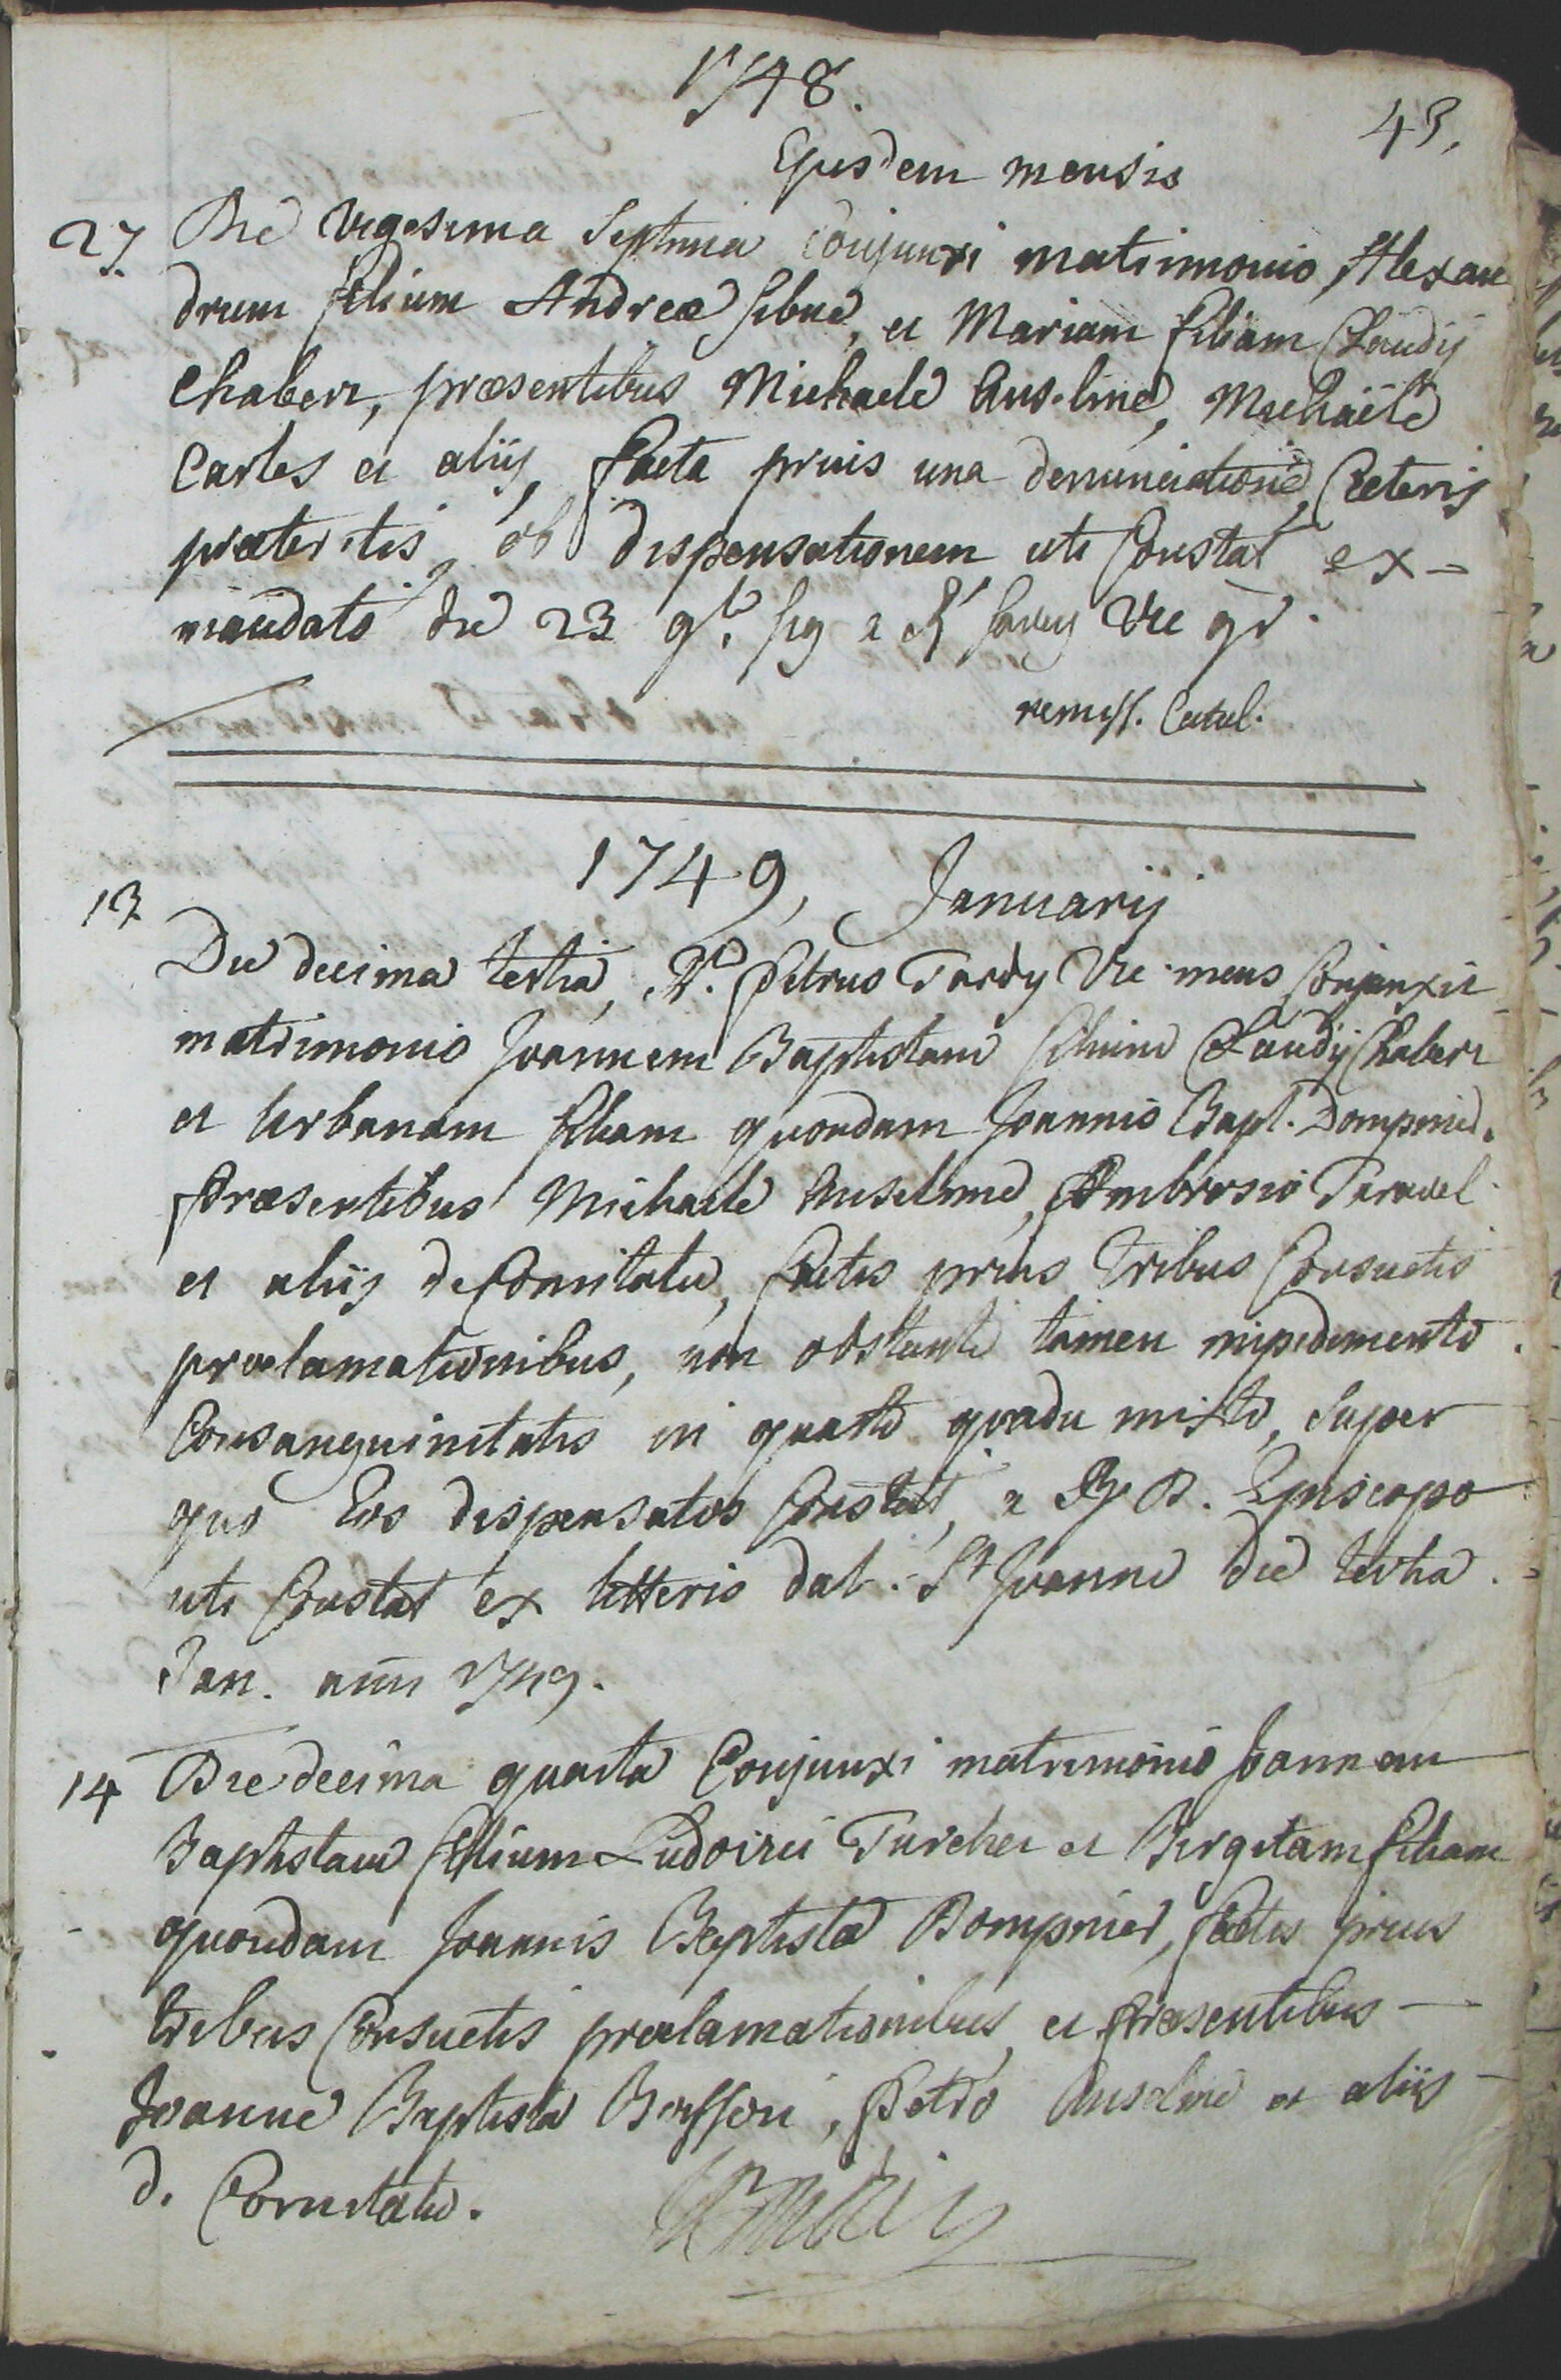 1748.
43.
Ejusdem mensis
27. Die vigesima septima conjunxi matrimonio Alexan
drum filium Andreæ sibue, et Mariam filiam Claudij
Chabert, præsentibus Michaele Anselme, Michaële
Carles et alijs, facta prius una denunciatione, Cæteris
præteritis ob dispensationem uti Constat ex=
mandato die 23 9bris sig a Rd Savey Vic gd.
remiss. Catal.
1749, Januarij
13 Die decima tertia, Rd. Petrus Tardy Vic meus Conjunxit
matrimonio Joannem Baptistam filium Claudij Chabert
et Urbanam filiam quondam Joannis Bapt. Dompnier.
Præsentibus Michaele Anselme, Ambrosio Taravel
et alijs de Comitatu, factis prius tribus Consuetis
proclamationibus, non obstante tamen impedimento
Consanguinitatis in quarto gradu mixto, super
quo Eos dispensatos Constat, a R D. Episcopo
uti Constat ex litteris dat. St Joanne die tertia
Jan. anni 1749.
14 Die decima quarta Conjunxi matrimonio Joannem
Baptistam filium Ludovici Turcher et Birgitam filiam
quondam Joannis Baptistæ Dompnier, factis prius
tribus Consuetis proclamationibus, et præsentibus
Joanne Baptista Bosson, Petro Anselme et aliis
d. Comitatu.